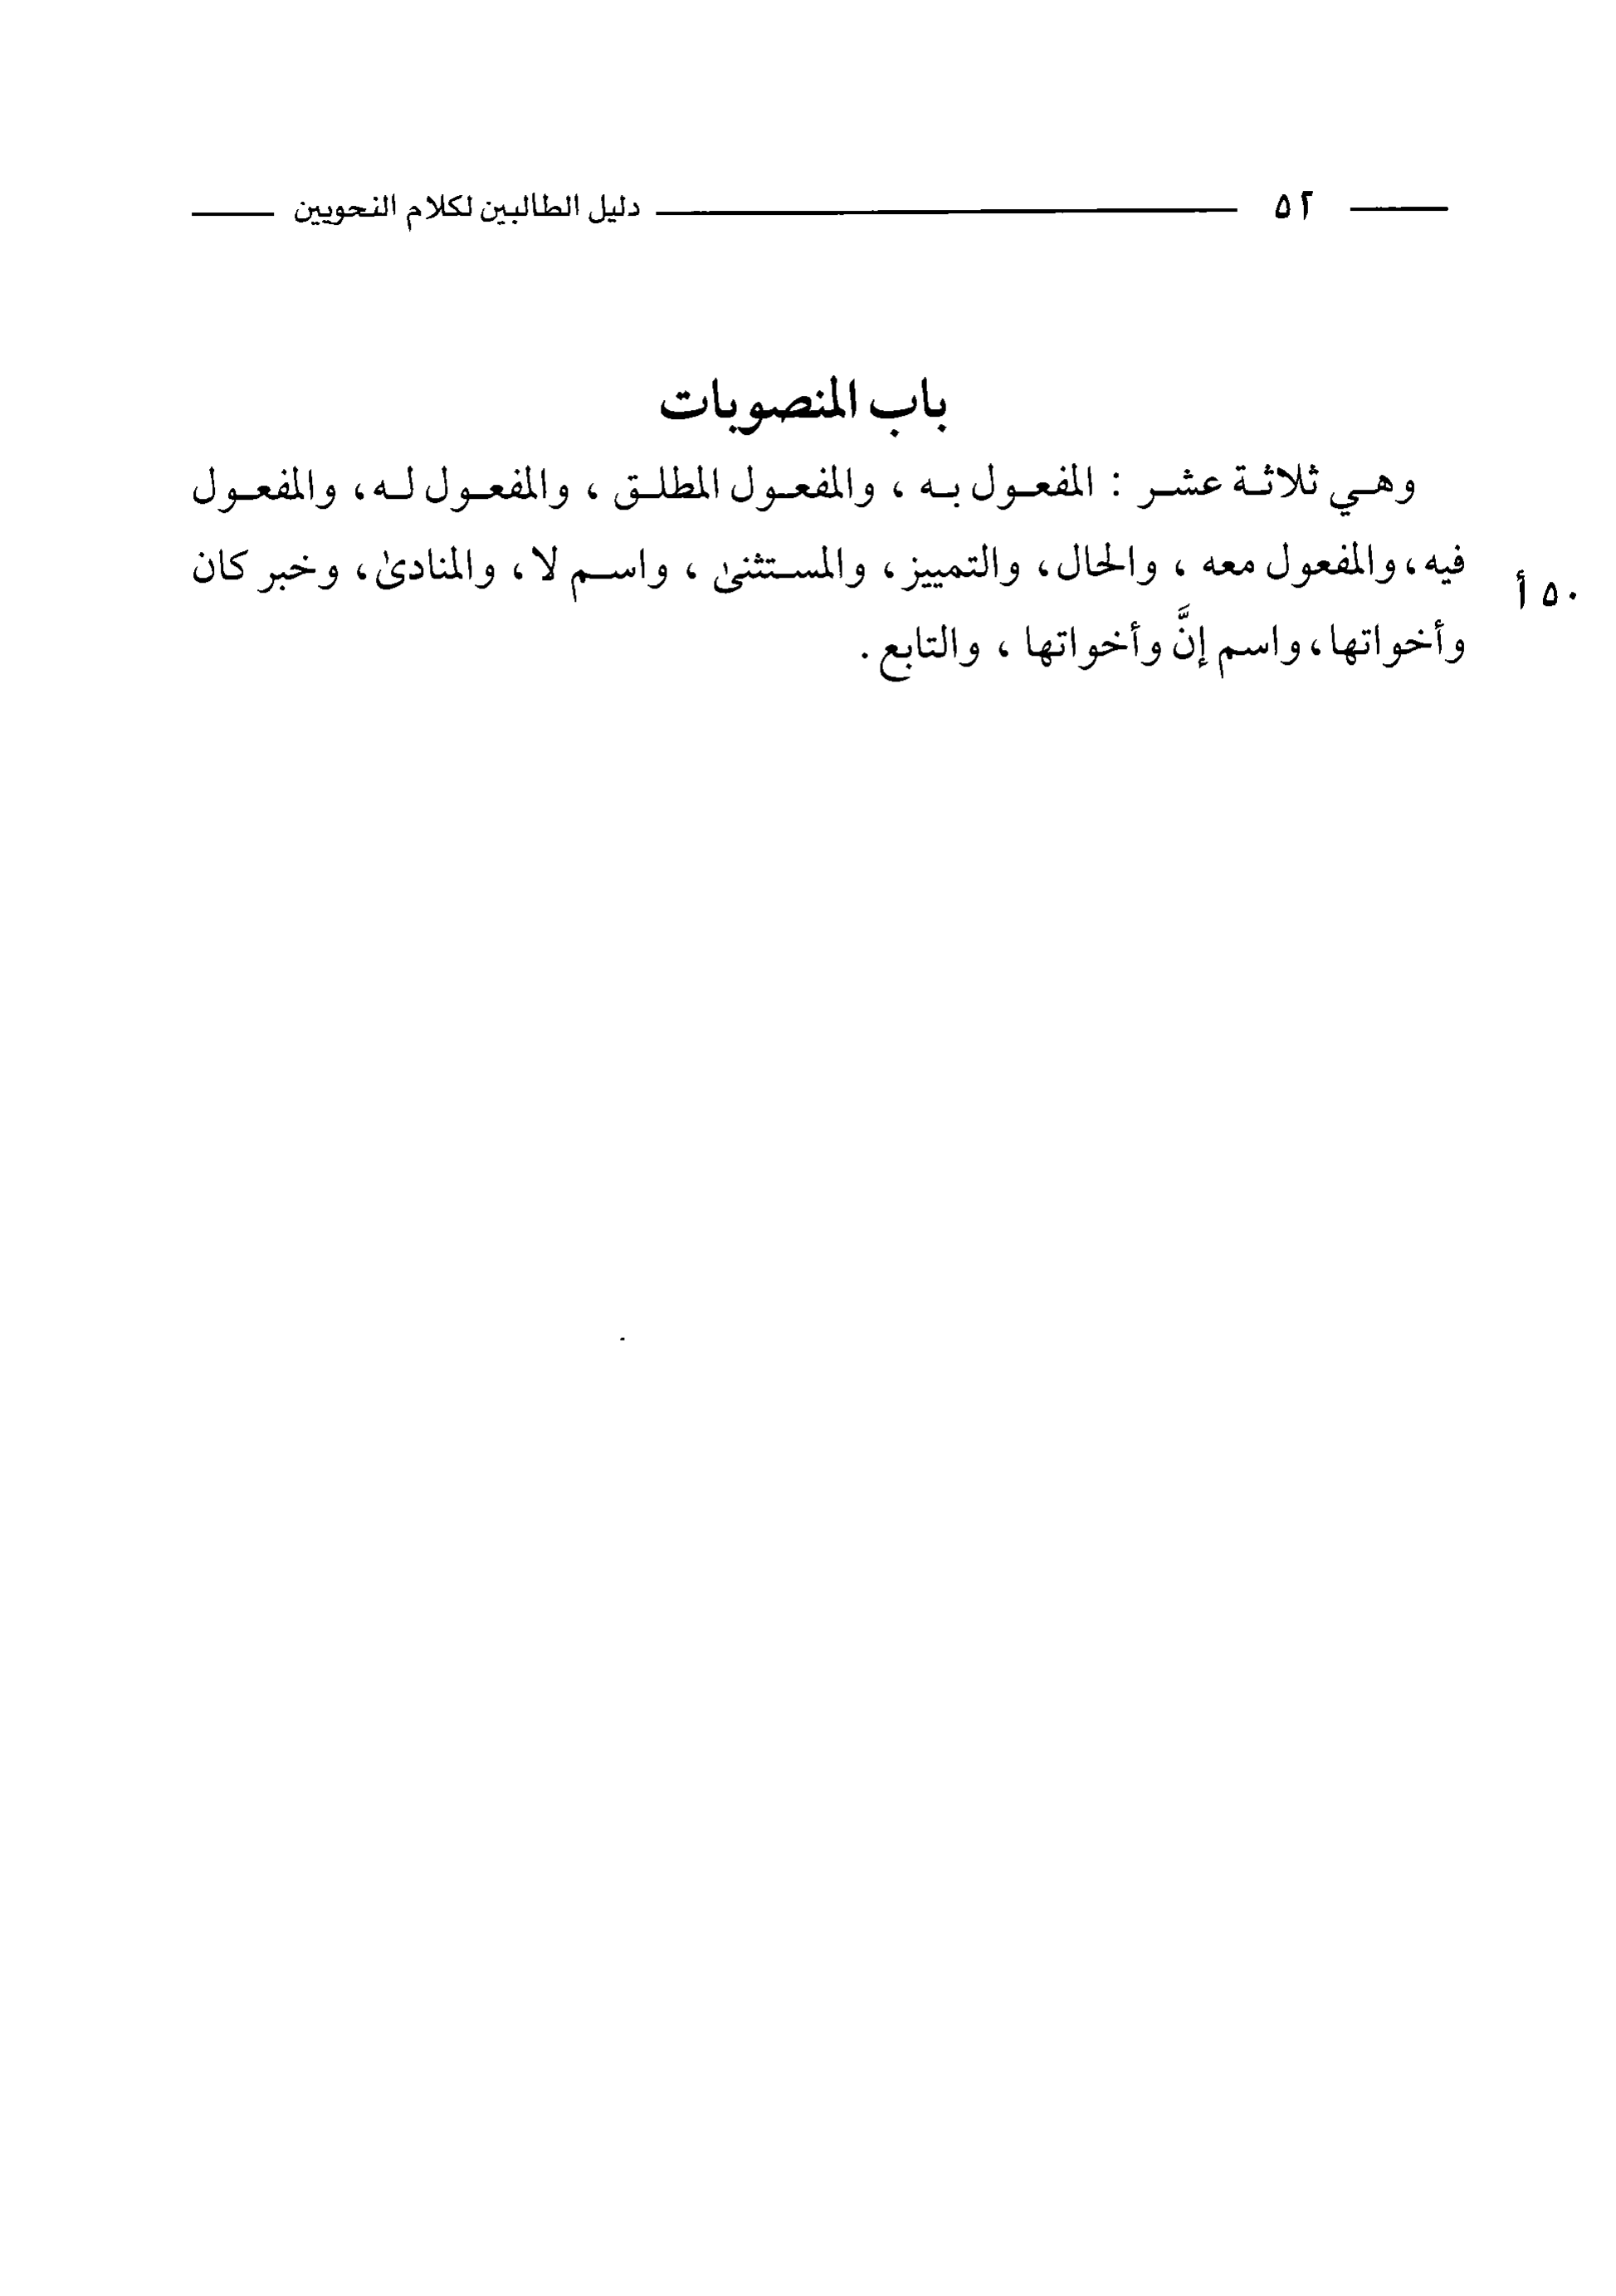 ٥٢ دليل الطالبين لكلام النحويين
باب المنصوبات
وهي ثلاثة عشر : المفعول به ، والمفعول المطلق ، والمفعول له، والمفعول
فيه، والمفعول معه ، والحال، والتمييز، والمستثنىٰ ، واسم لا، والمنادىٰ، وخبر كان
٥٠ أ
وأخواتها، واسم إنَّ وأخواتها ، والتابع .